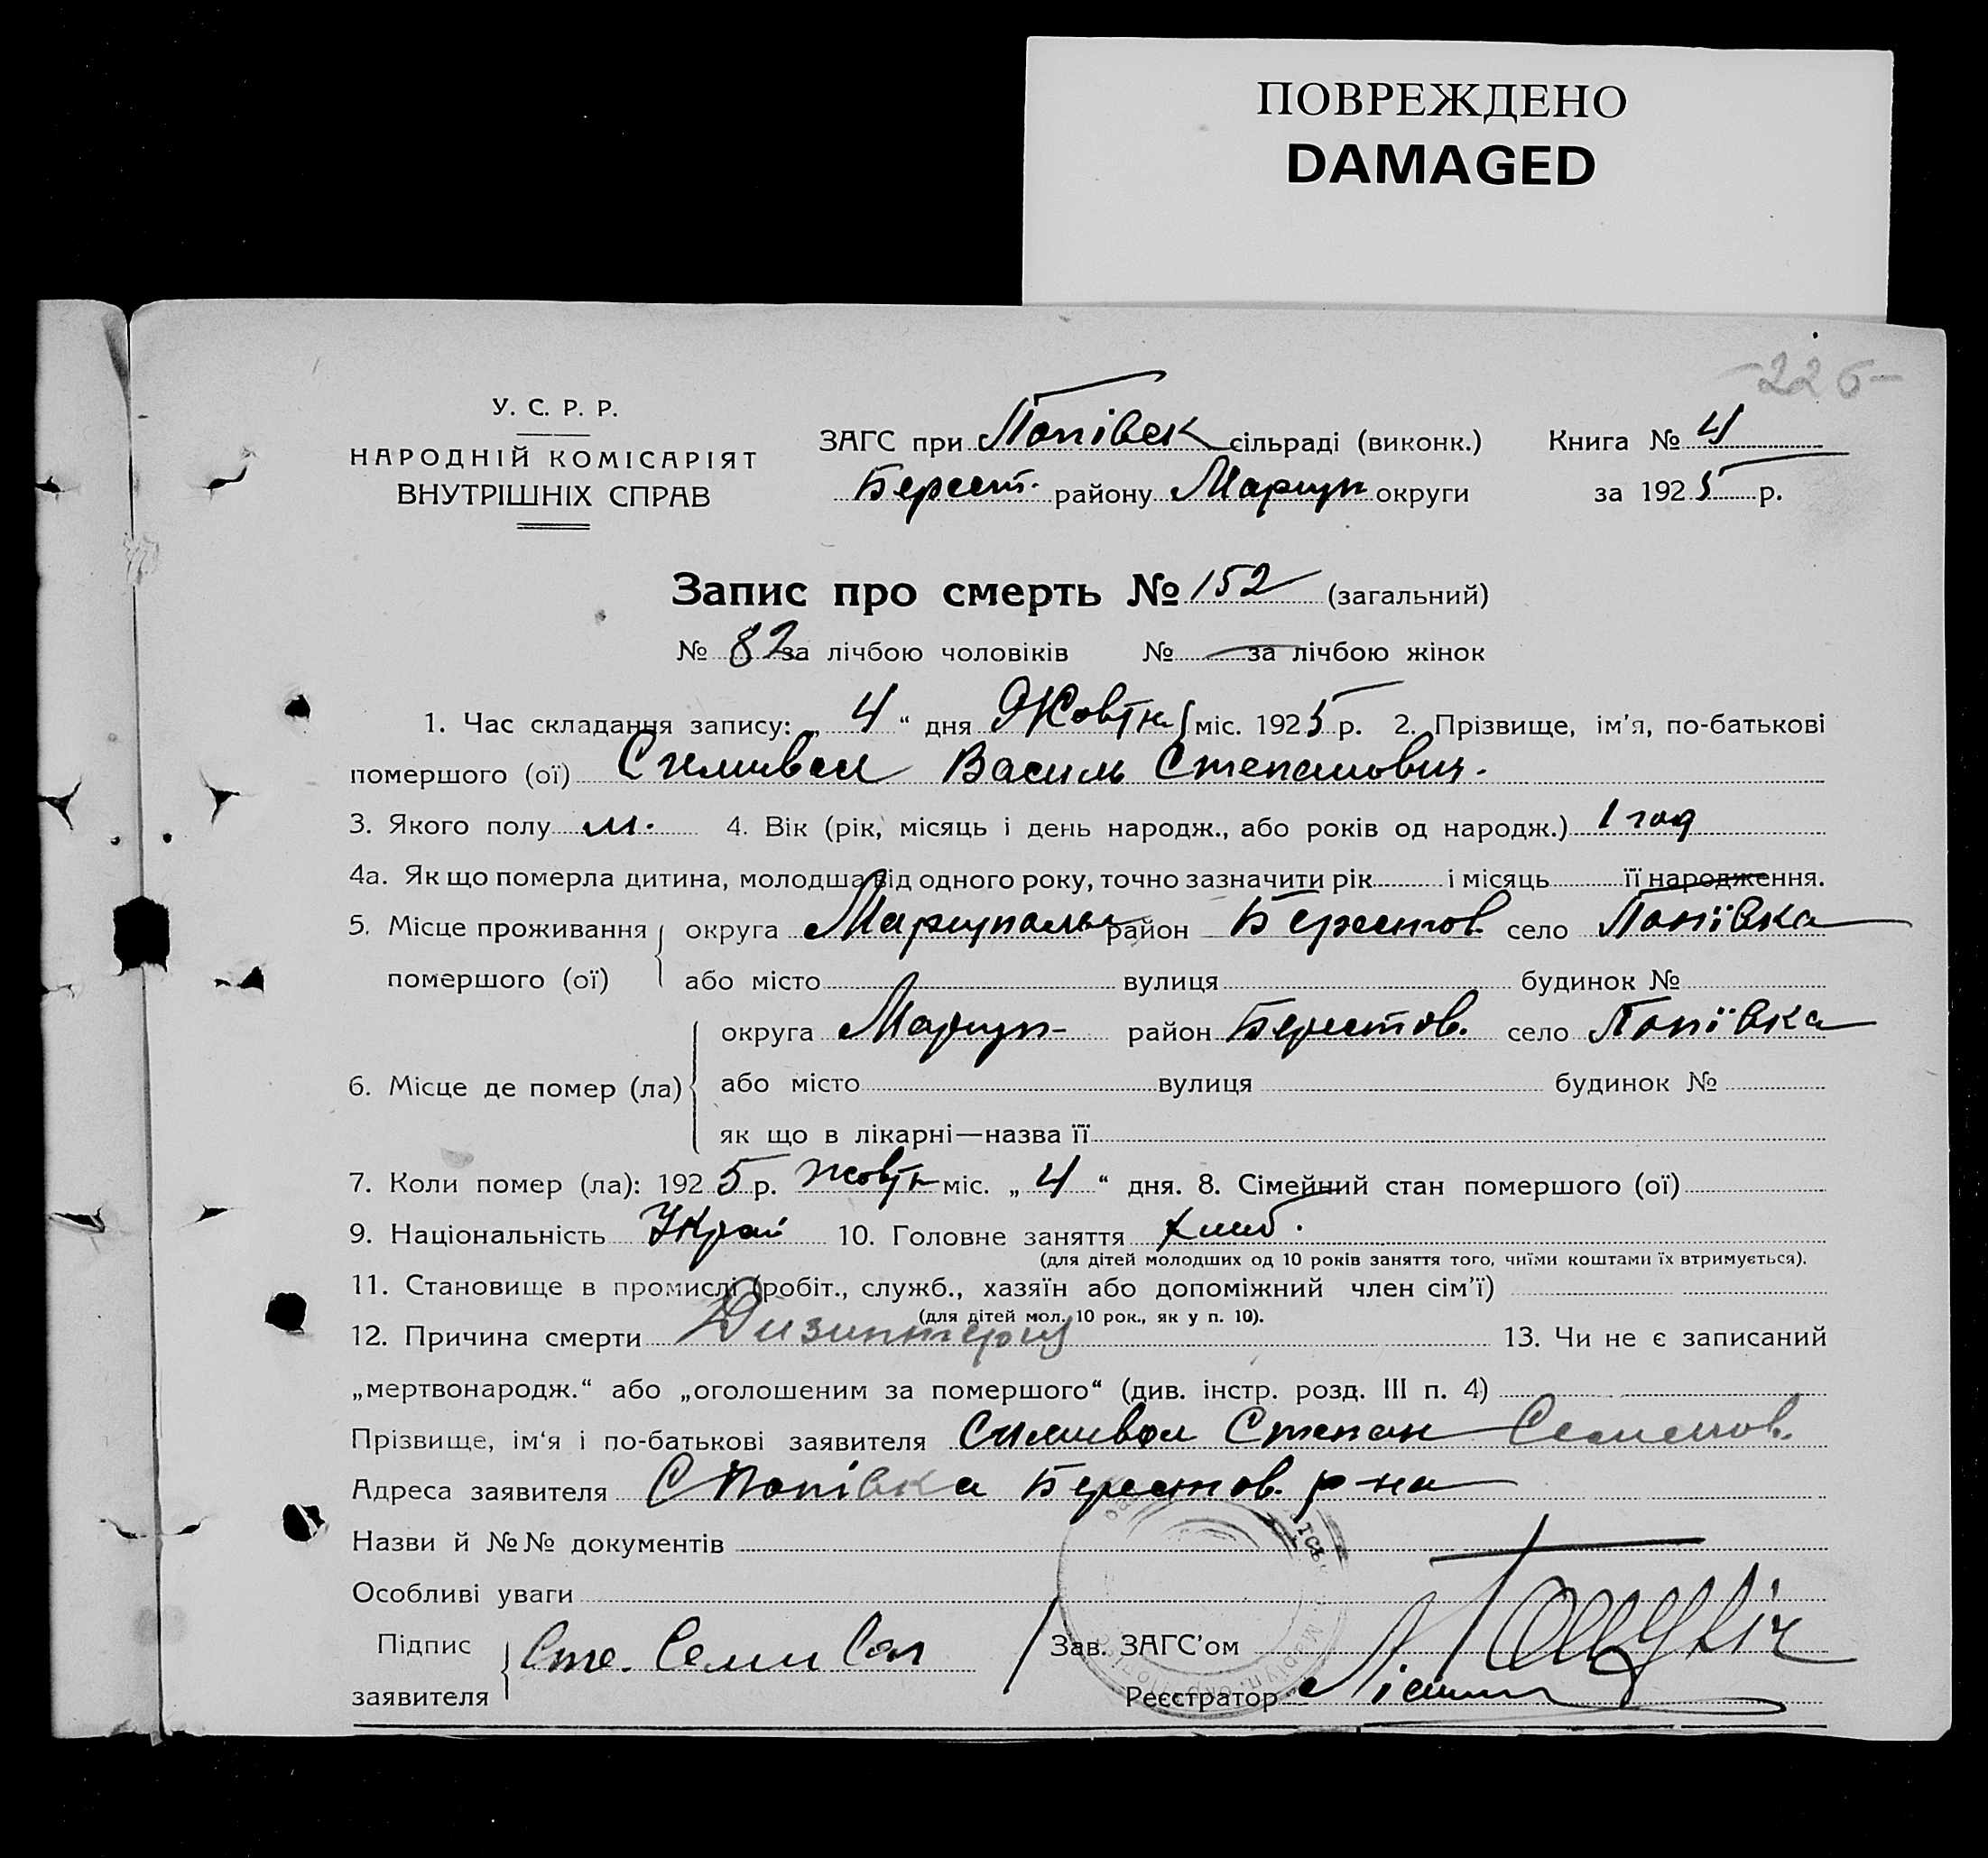 ПОВРЕЖДЕНО
DAMAGED
-22б-
У. С. Р. Р.
НАРОДНІЙ КОМІСАРІЯТ
ВНУТРІШНІХ СПРАВ
ЗАГС при Попівск сільраді (виконк.) Книга № 4
Берест. району Маріуп округи за 1925 р.
Запис про смерть № 152 (загальний)
№ 82 за лічбою чоловіків № — за лічбою жінок
1. Час складання запису: „ 4 “ дня Жовтн міс. 1925 р. 2. Прізвище, ім'я, по-батькові
помершого (ої) Василь Степанович.
3. Якого полу м. 4. Вік (рік, місяць і день народж., або років од народж.) 1 год
4а. Як що померла дитина, молодша від одного року, точно зазначити рік і місяць її народження.
5. Місце проживання помершого (ої) округа Маріупольс район Берестов. село Попівка
або місто вулиця будинок №
6. Місце де помер (ла) округа Маріуп- район Берестов. село Попівка
або місто вулиця будинок №
як що в лікарні—назва її
7. Коли помер (ла): 1925 р. жовтн міс. „ 4 “ дня. 8. Сімейний стан помершого (ої)
9. Національність Украй 10. Головне заняття хліб.
(для дітей молодших од 10 років заняття того, чиїми коштами їх втримується).
11. Становище в промислі (робіт., служб., хазяїн або допоміжний член сім'ї)
(для дітей мол. 10 рок., як у п. 10).
12. Причина смерти Дизинтерия 13. Чи не є записаний
„мертвонародж.“ або „оголошеним за помершого“ (див. інстр. розд. III п. 4)
Прізвище, ім'я і по-батькові заявителя Степан Семенов.
Адреса заявителя С Попівка Берестов. р-на
Назви й №№ документів
Особливі уваги
Підпис заявителя Сте. Семивол Зав. ЗАГС'ом
Реєстратор